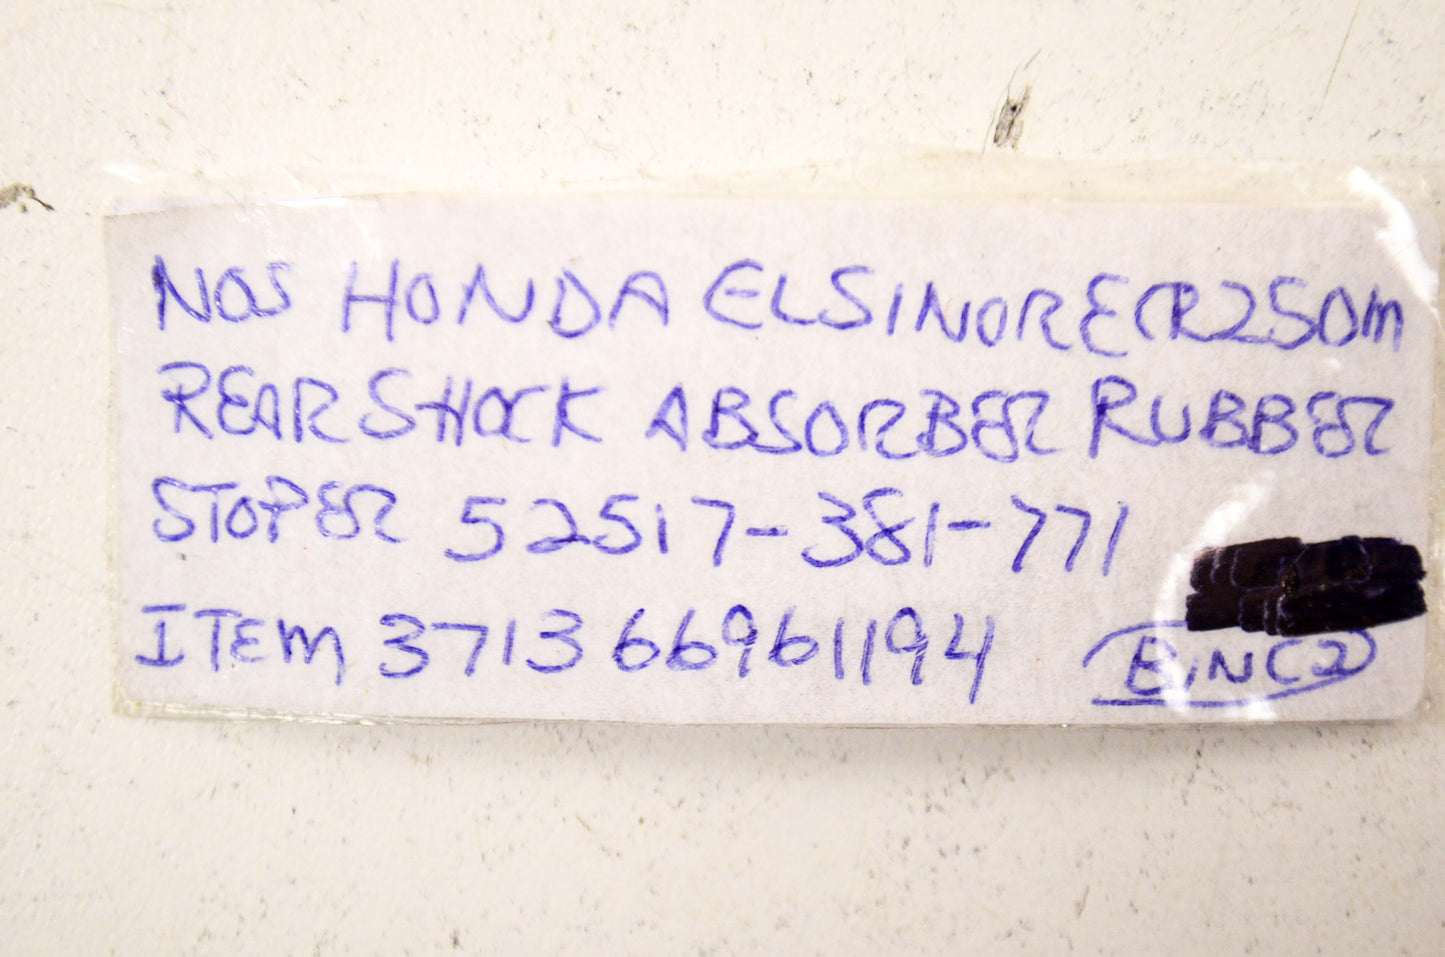 NOS HONDA ELSINORE CR250M
REAR SHOCK ABSORBER RUBBER
STOPER 52517-381-771
ITEM 371366961194
BINC2